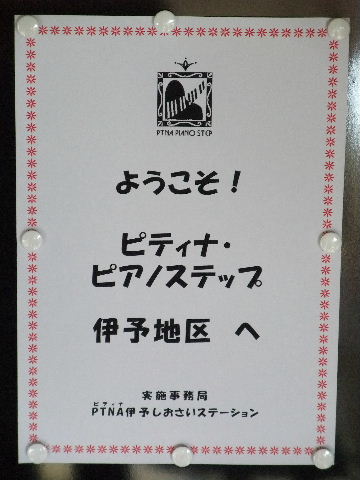 PTNA PIANO STEP
ようこそ！
ピティナ・
ピアノステップ
伊予地区 へ
実施事務局
ピティナ
PTNA伊予しおさいステーション